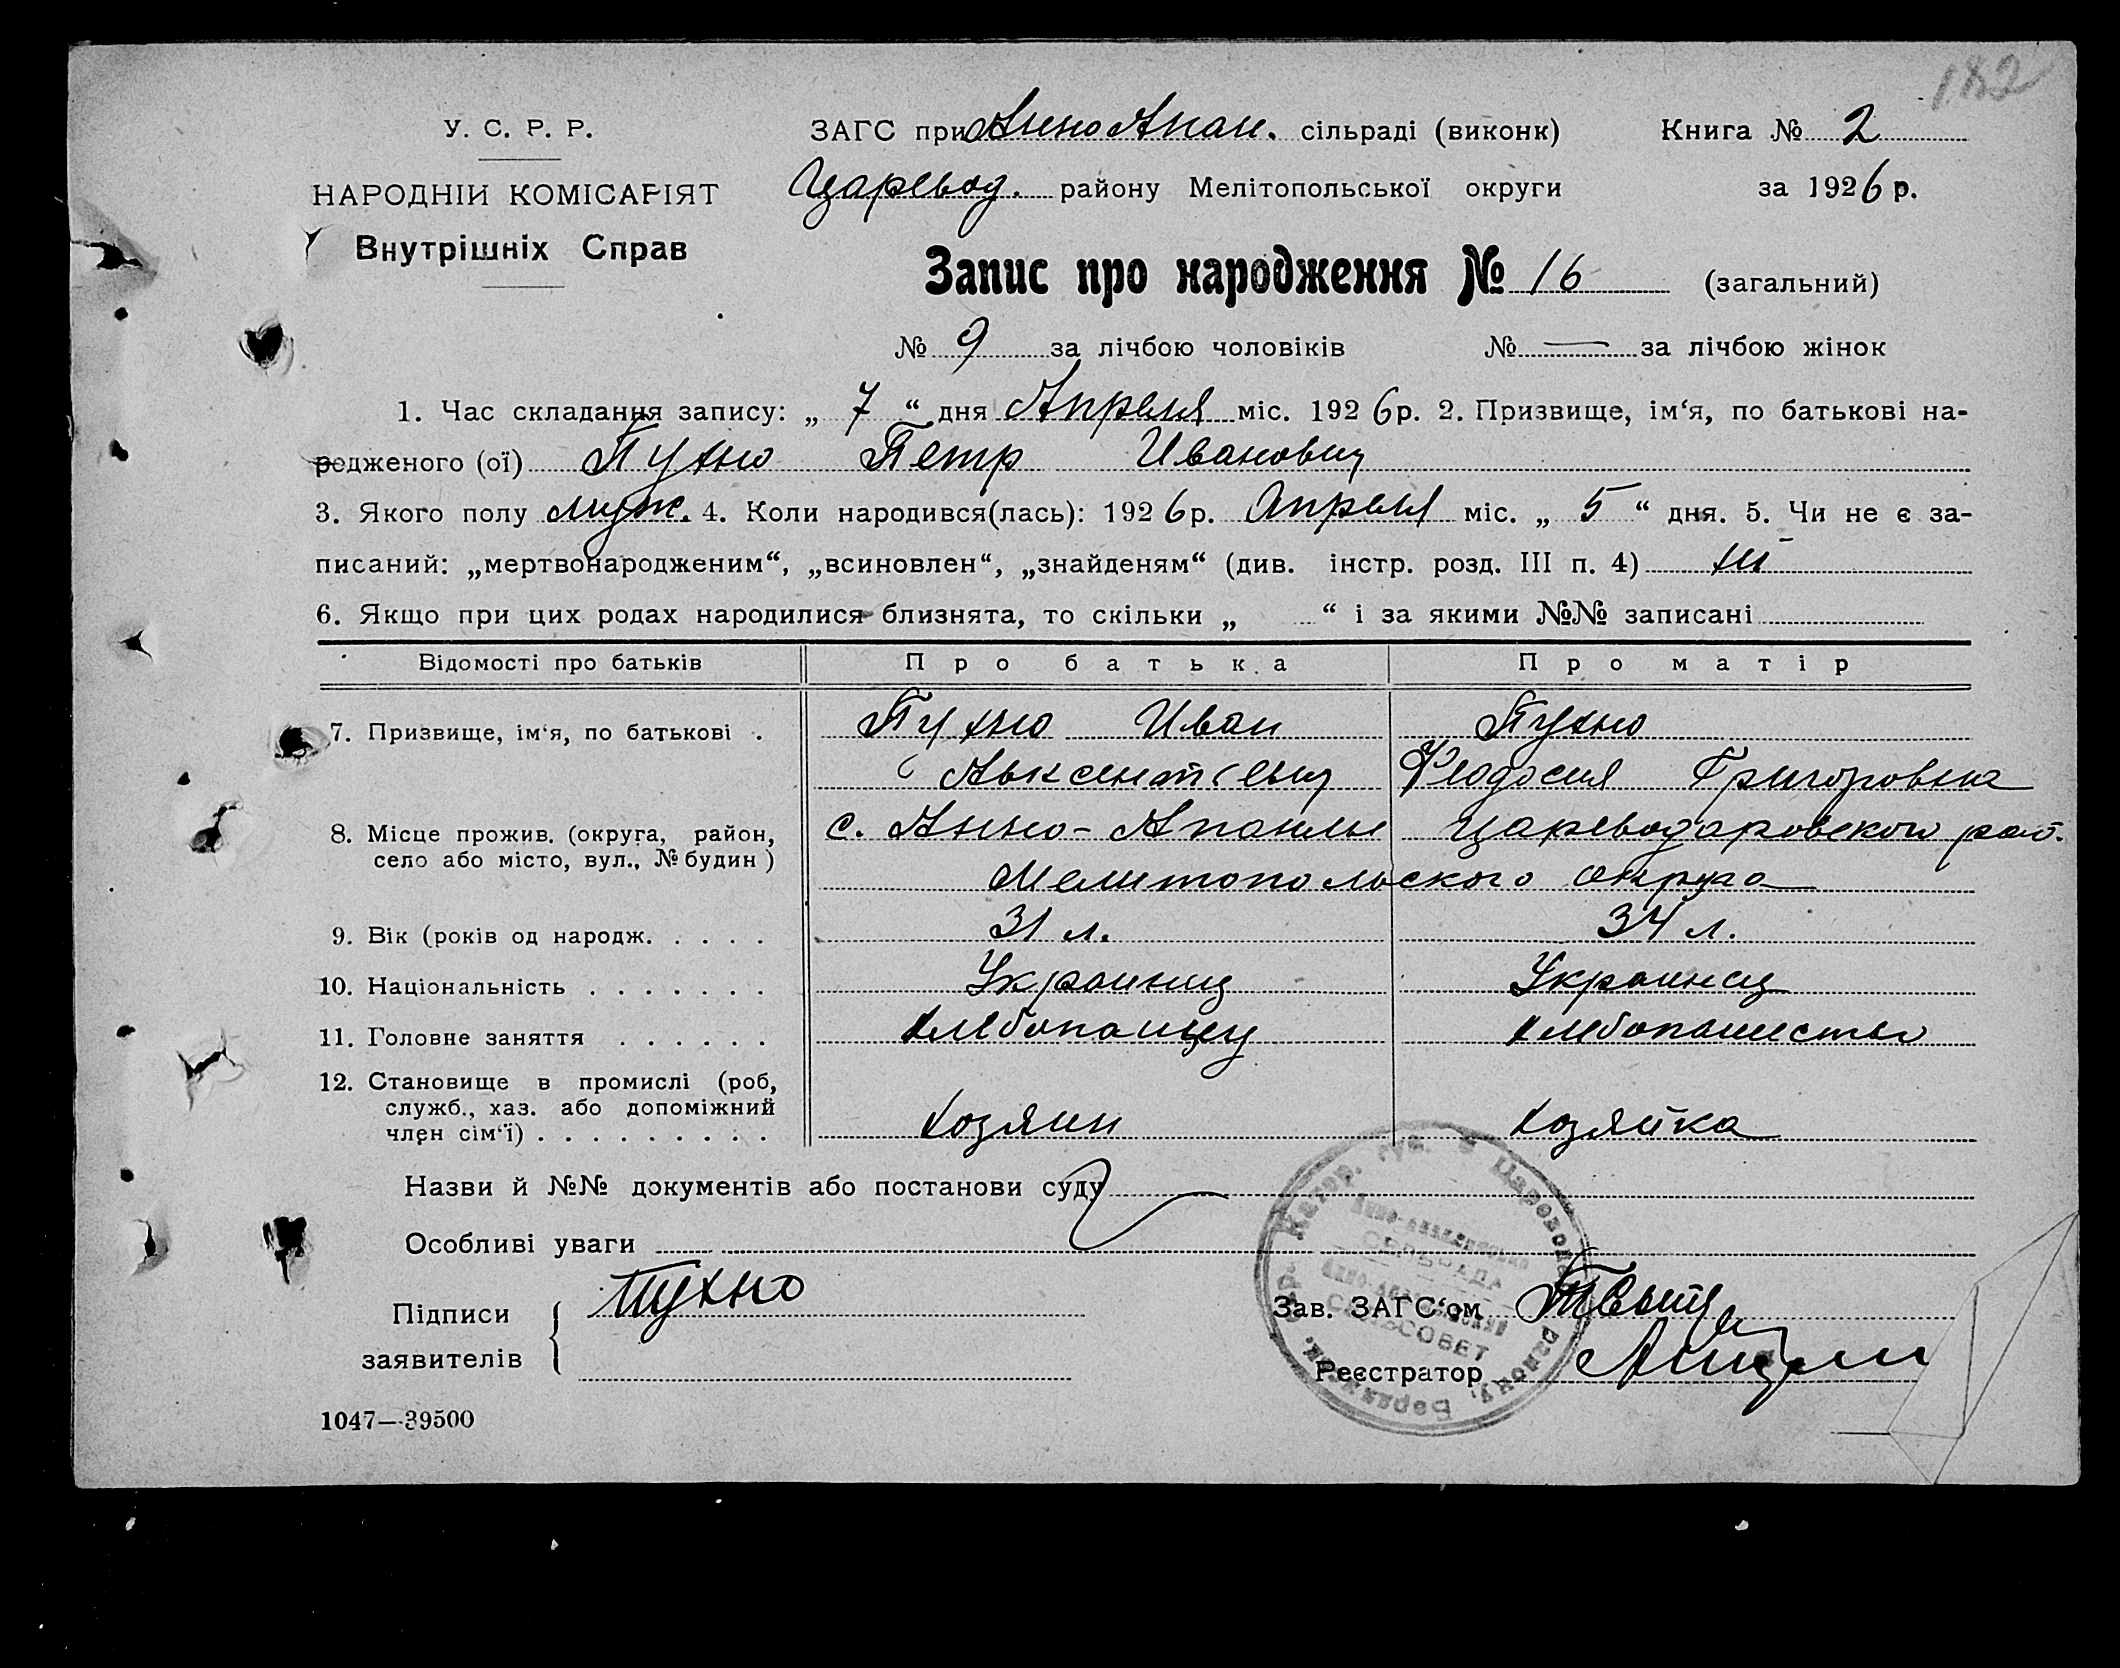 182
У. С. Р. Р.
НАРОДНІЙ КОМІСАРІЯТ
Внутрішніх Справ
ЗАГС при Анно Апан. сільраді (виконк)
Книга № 2
Царевод. району Мелітопольської округи
за 1926 р.
Запис про народження № 16 (загальний)
№ 9 за лічбою чоловіків № — за лічбою жінок
1. Час складання запису: „ 7 “ дня Апреля міс. 1926 р. 2. Призвище, ім‘я, по батькові на-
родженого (ої) Пухно Петр Иванович
3. Якого полу муж. 4. Коли народився(лась): 1926 р. Апреля міс. „ 5 “ дня. 5. Чи не є за-
писаний: „мертвонародженим“, „всиновлен“, „знайденям“ (див. інстр. розд. III п. 4)
6. Якщо при цих родах народилися близнята, то скільки „ “ і за якими №№ записані
Відомості про батьків Про батька Про матір
7. Призвище, ім‘я, по батькові . Пухно Иван Пухно
Авксентьевич Феодосия Григоровна
8. Місце прожив. (округа, район, с. Анно-Апанлы Цареводаровского рай.
село або місто, вул., № будин ) Мелитопольского округа
9. Вік (років од народж. . . . . 31 л. 34 л.
10. Національність . . . . . . . Украинец Украинец
11. Головне заняття . . . . . . хлебопашец хлебопашество
12. Становище в промислі (роб,
служб., хаз. або допоміжний
член сім‘ї) . . . . . . . . . Хозяин хозяйка
Назви й №№ документів або постанови суду
Особливі уваги
Підписи
заявителів
Пухно
Зав. ЗАГС‘ом
Реєстратор
СІЛЬРАДА
СЕЛЬСОВЕТ
1047—39500